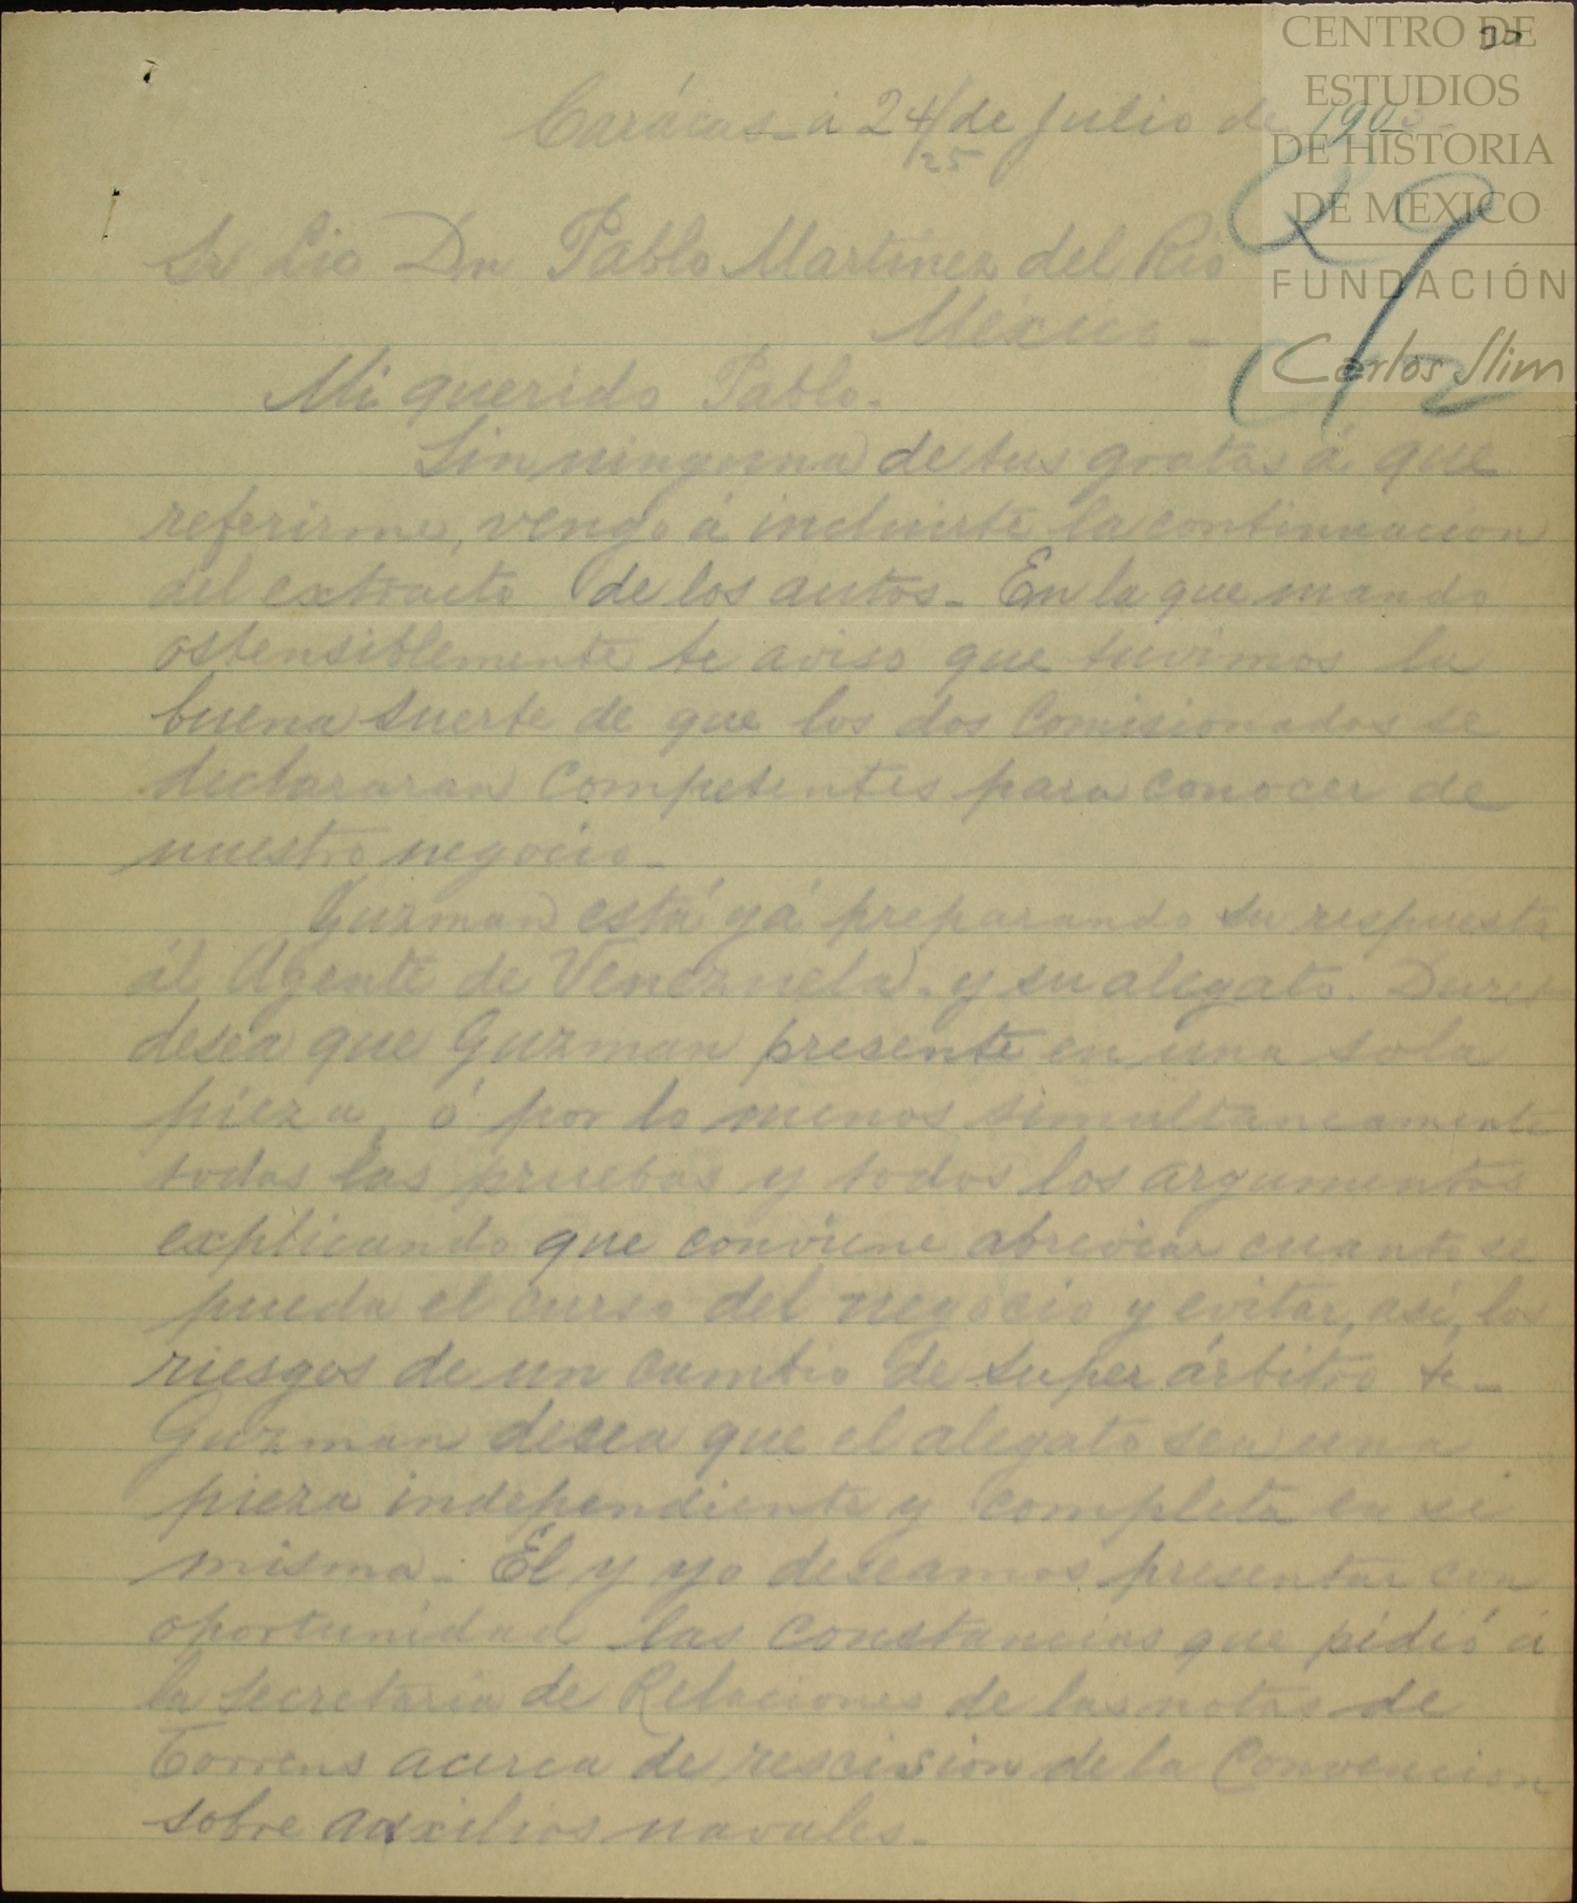 CENTRO DE
ESTUDIOS
DE HISTORIA
DE MEXICO
FUNDACIÓN
Carlos Slim
Carácas á 24/25 de Julio de 1903.
Sr Lic Dn Pablo Martinez del Rio
México -
Mi querido Pablo.
Sin ninguna de tus gratas á que
referirme, vengo á incluirte la continuacion
del extracto de los autos - En la que mando
ostensiblemente te aviso que tuvimos la
buena suerte de que los dos Comisionados se
declararan Competentes para conocer de
nuestro negocio -
Guzman está yá preparando su respuesta
ál Agente de Venezuela - y su alegato.
desea que Guzman presente en una sola
pieza, ó por lo menos simultaneamente
todas las pruebas y todos los argumentos
explicando que conviene abreviar cuanto se
pueda el curso del negocio y evitar, así, los
riesgos de un cambio de super árbitro &c -
Guzman desea que el alegato sea una
pieza independiente y completa en sí
misma - Él y yo deseamos presentar con
oportunidad las constancias que pidió á
la Secretaria de Relaciones de las notas de
Torrens acerca de rescision de la Convencion
sobre auxilios navales.